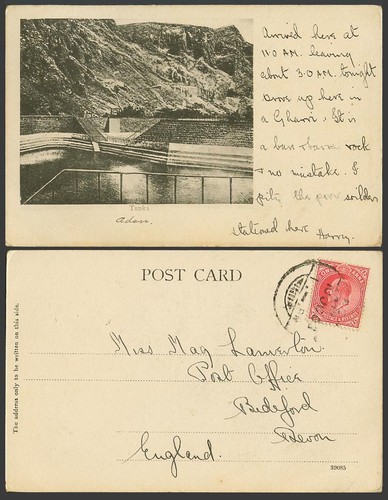 Arrived here at
11.0 A.M. leaving
about 3.0 A.M. tonight
Drove up here in
a Gharri. It is
a bare barren rock
& no mistake. I
pity the poor soilders
stationed here
Harry.
Tanks
Aden.
POST CARD
The address only to be written on this side.
Miss May Lamerton
Post Office
Bideford
Devon
England.
39085